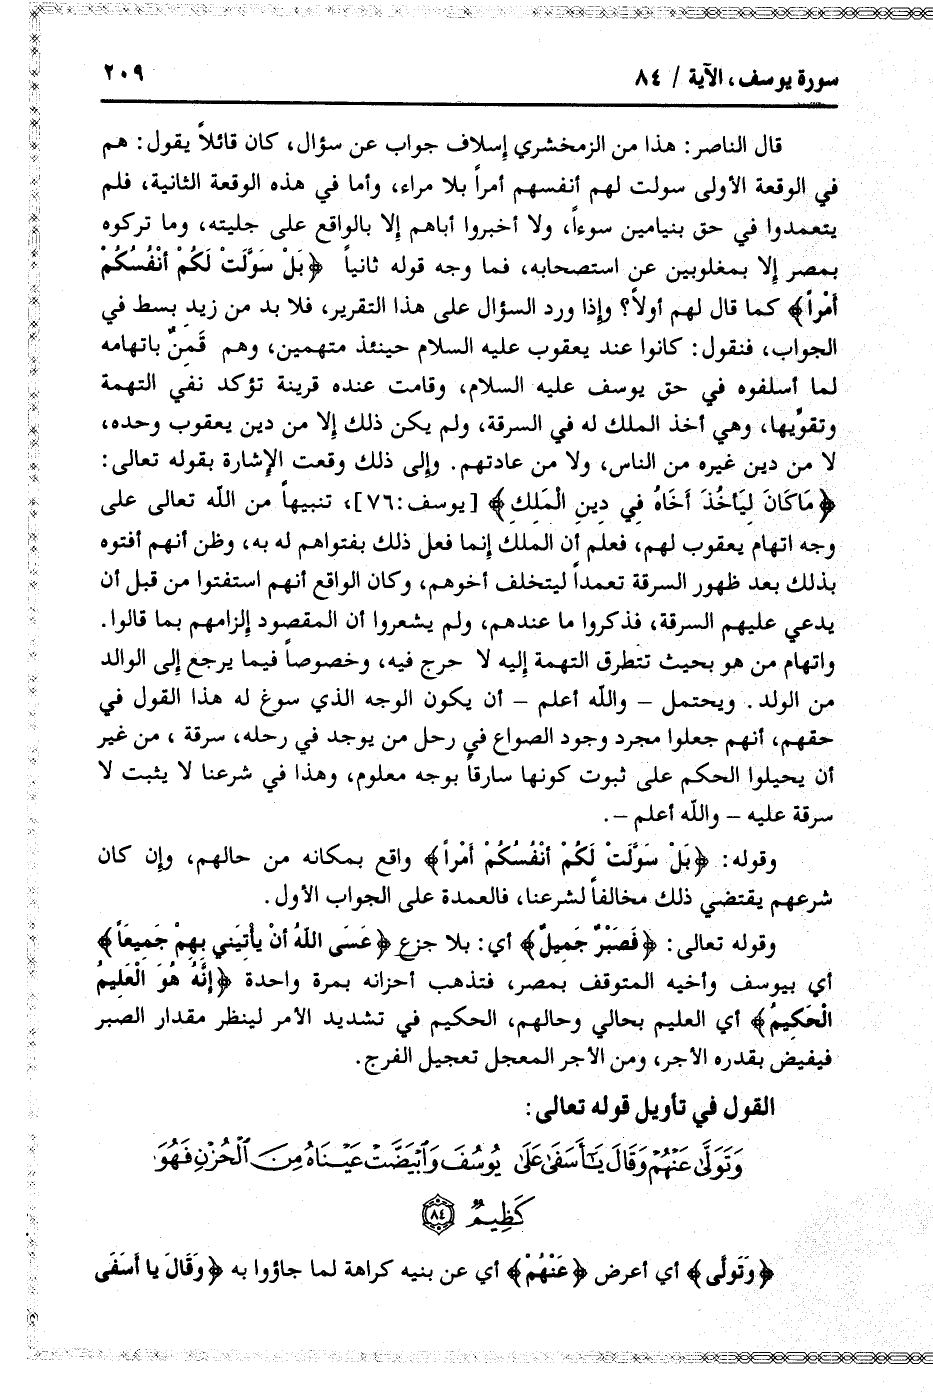 سورة يوسف، الآية / ٨٤
٢٠٩
قال الناصر: هذا من الزمخشري إسلاف جواب عن سؤال، كان قائلاً يقول: هم
في الوقعة الأولى سولت لهم أنفسهم أمراً بلا مراء، وأما في هذه الوقعة الثانية، فلم
يتعمدوا في حق بنيامين سوءاً، ولا أخبروا أباهم إلا بالواقع على جليته، وما تركوه
بمصر إلا بمغلوبين عن استصحابه، فما وجه قوله ثانياً ﴿بَلْ سَوَّلَتْ لَكُمْ أنْفُسُكُمْ
أمْراً﴾ كما قال لهم أولاً؟ وإذا ورد السؤال على هذا التقرير، فلا بد من زيد بسط في
الجواب، فنقول: كانوا عند يعقوب عليه السلام حينئذ متهمين، وهم قَمَنٌ باتهامه
لما أسلفوه في حق يوسف عليه السلام، وقامت عنده قرينة تؤكد نفي التهمة
وتقوِّيها، وهي أخذ الملك له في السرقة، ولم يكن ذلك إلا من دين يعقوب وحده،
لا من دين غيره من الناس، ولا من عادتهم. وإلى ذلك وقعت الإشارة بقوله تعالى:
﴿مَاكَانَ لِيَأخُذَ أخَاهُ فِي دِينِ الْمَلِكِ﴾ [يوسف:٧٦]، تنبيهاً من اللّه تعالى على
وجه اتهام يعقوب لهم، فعلم أن الملك إنما فعل ذلك بفتواهم له به، وظن أنهم أفتوه
بذلك بعد ظهور السرقة تعمداً ليتخلف أخوهم، وكان الواقع أنهم استفتوا من قبل أن
يدعي عليهم السرقة، فذكروا ما عندهم، ولم يشعروا أن المقصود إلزامهم بما قالوا.
واتهام من هو بحيث تتطرق التهمة إليه لا حرج فيه، وخصوصاً فيما يرجع إلى الوالد
من الولد. ويحتمل – واللّه أعلم – أن يكون الوجه الذي سوغ له هذا القول في
حقهم، أنهم جعلوا مجرد وجود الصواع في رحل من يوجد في رحله، سرقة ، من غير
أن يحيلوا الحكم على ثبوت كونها سارقاً بوجه معلوم، وهذا في شرعنا لا يثبت لا
سرقة عليه – واللّه أعلم –.
وقوله: ﴿بَلْ سَوَّلَتْ لَكُمْ أنْفُسُكُمْ أمْراً﴾ واقع بمكانه من حالهم، وإن كان
شرعهم يقتضي ذلك مخالفاً لشرعنا، فالعمدة على الجواب الأول.
وقوله تعالى: ﴿فَصَبْرٌ جَمِيلٌ﴾ أي: بلا جزع ﴿عَسَى اللّهُ أنْ يأْتِيَني بِهِمْ جَمِيعَاً﴾
أي بيوسف وأخيه المتوقف بمصر، فتذهب أحزانه بمرة واحدة ﴿إنَّهُ هُوَ الْعَلِيمُ
الْحَكِيمُ﴾ أي العليم بحالي وحالهم، الحكيم في تشديد الأمر لينظر مقدار الصبر
فيفيض بقدره الأجر، ومن الأجر المعجل تعجيل الفرج.
القول في تأويل قوله تعالى:
وَتَوَلَّىٰ عَنْهُمْ وَقَالَ يَٰٓأَسَفَىٰ عَلَىٰ يُوسُفَ وَٱبْيَضَّتْ عَيْنَاهُ مِنَ ٱلْحُزْنِ فَهُوَ
كَظِيمٌ ﴿٨٤﴾
﴿وَتَولَّى﴾ أي أعرض ﴿عَنْهُمْ﴾ أي عن بنيه كراهة لما جاؤوا به ﴿وَقَالَ يا أسَفَى